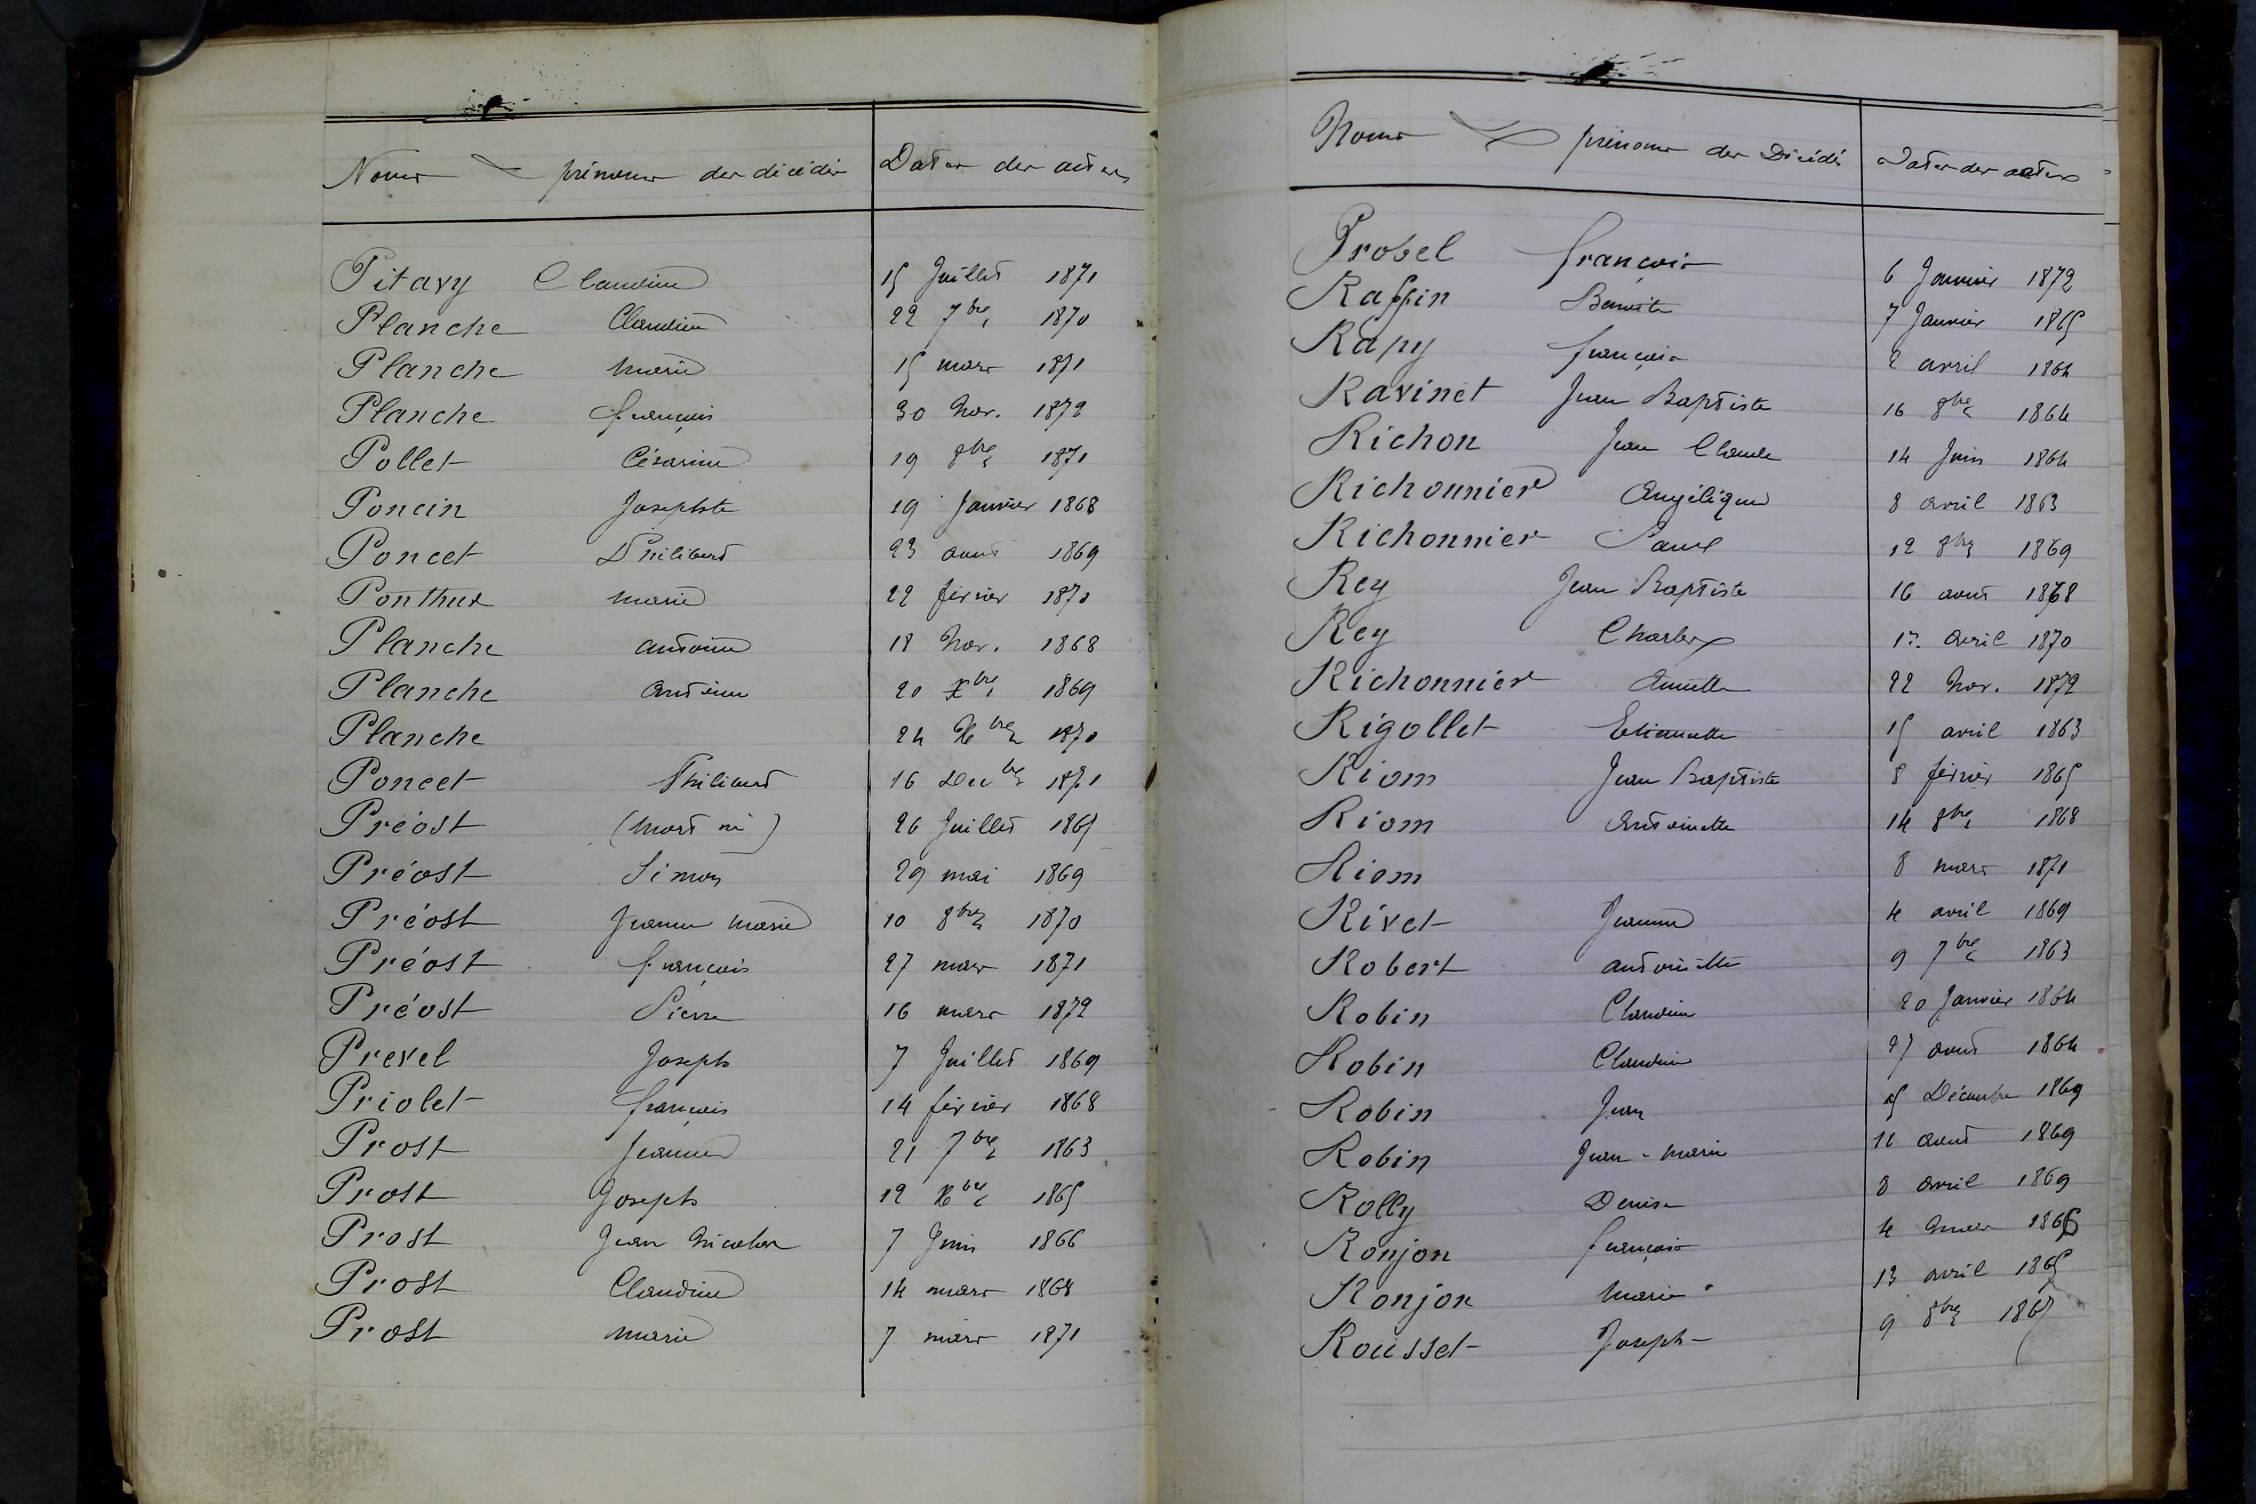 Noms & prénoms des décédés Dates des actes
Pitavy Claudine 15 Juillet 1871
Planche Claudine 22 7bre 1870
Planche Marie 15 mars 1871
Planche françois 30 Nov. 1872
Pollet Césarine 19 8bre 1871
Poncin Josephte 19 Janvier 1868
Poncet Philibert 23 aout 1869
Ponthus Marie 22 février 1871
Planche antoine 18 Nov. 1868
Planche antoine 20 Xbre 1869
Planche 24 Xbre 1870
Poncet Philibert 16 Decbre 1871
Préost (mort né) 26 Juillet 1865
Préost Simon 29 mai 1869
Préost Jeanne Marie 10 8bre 1870
Préost françois 27 mars 1871
Préost Pierre 16 mars 1872
Prevel Joseph 7 Juillet 1869
Priolet françois 14 février 1868
Prost Jeanne 21 7bre 1863
Prost Joseph 12 Xbre 1865
Prost Jean Nicolas 7 Juin 1866
Prost Claudine 14 mars 1868
Prost Marie 7 mars 1871
Noms & prénoms des Décédés Dates des actes
Probel françois 6 Janvier 1872
Raffin Benoite 7 Janvier 1865
Rapy françois 2 avril 1864
Ravinet Jean Baptiste 16 8bre 1864
Richon Jean Claude 14 Juin 1864
Richonnier Angélique 8 avril 1863
Richonnier Paul 12 8bre 1869
Rey Jean Baptiste 16 aout 1868
Rey Charles avril 1870
Richonnier Annette 22 Nov. 1872
Rigollet Etiennette 15 avril 1863
Riom Jean Baptiste 8 février 1865
Riom Antoinette 14 8bre 1868
Riom 8 mars 1871
Rivet Jeanne 4 avril 1869
Robert antoinette 9 7bre 1863
Robin Claudine 20 Janvier 1864
Robin Claudine aout 1864
Robin Jean Décembre 1869
Robin Jean-Marie aout 1869
Rolly Denise 8 avril 1869
Ronjon françois 4 1865
Ronjon Marie 13 avril 1865
Rousset Joseph 9 8bre 1867